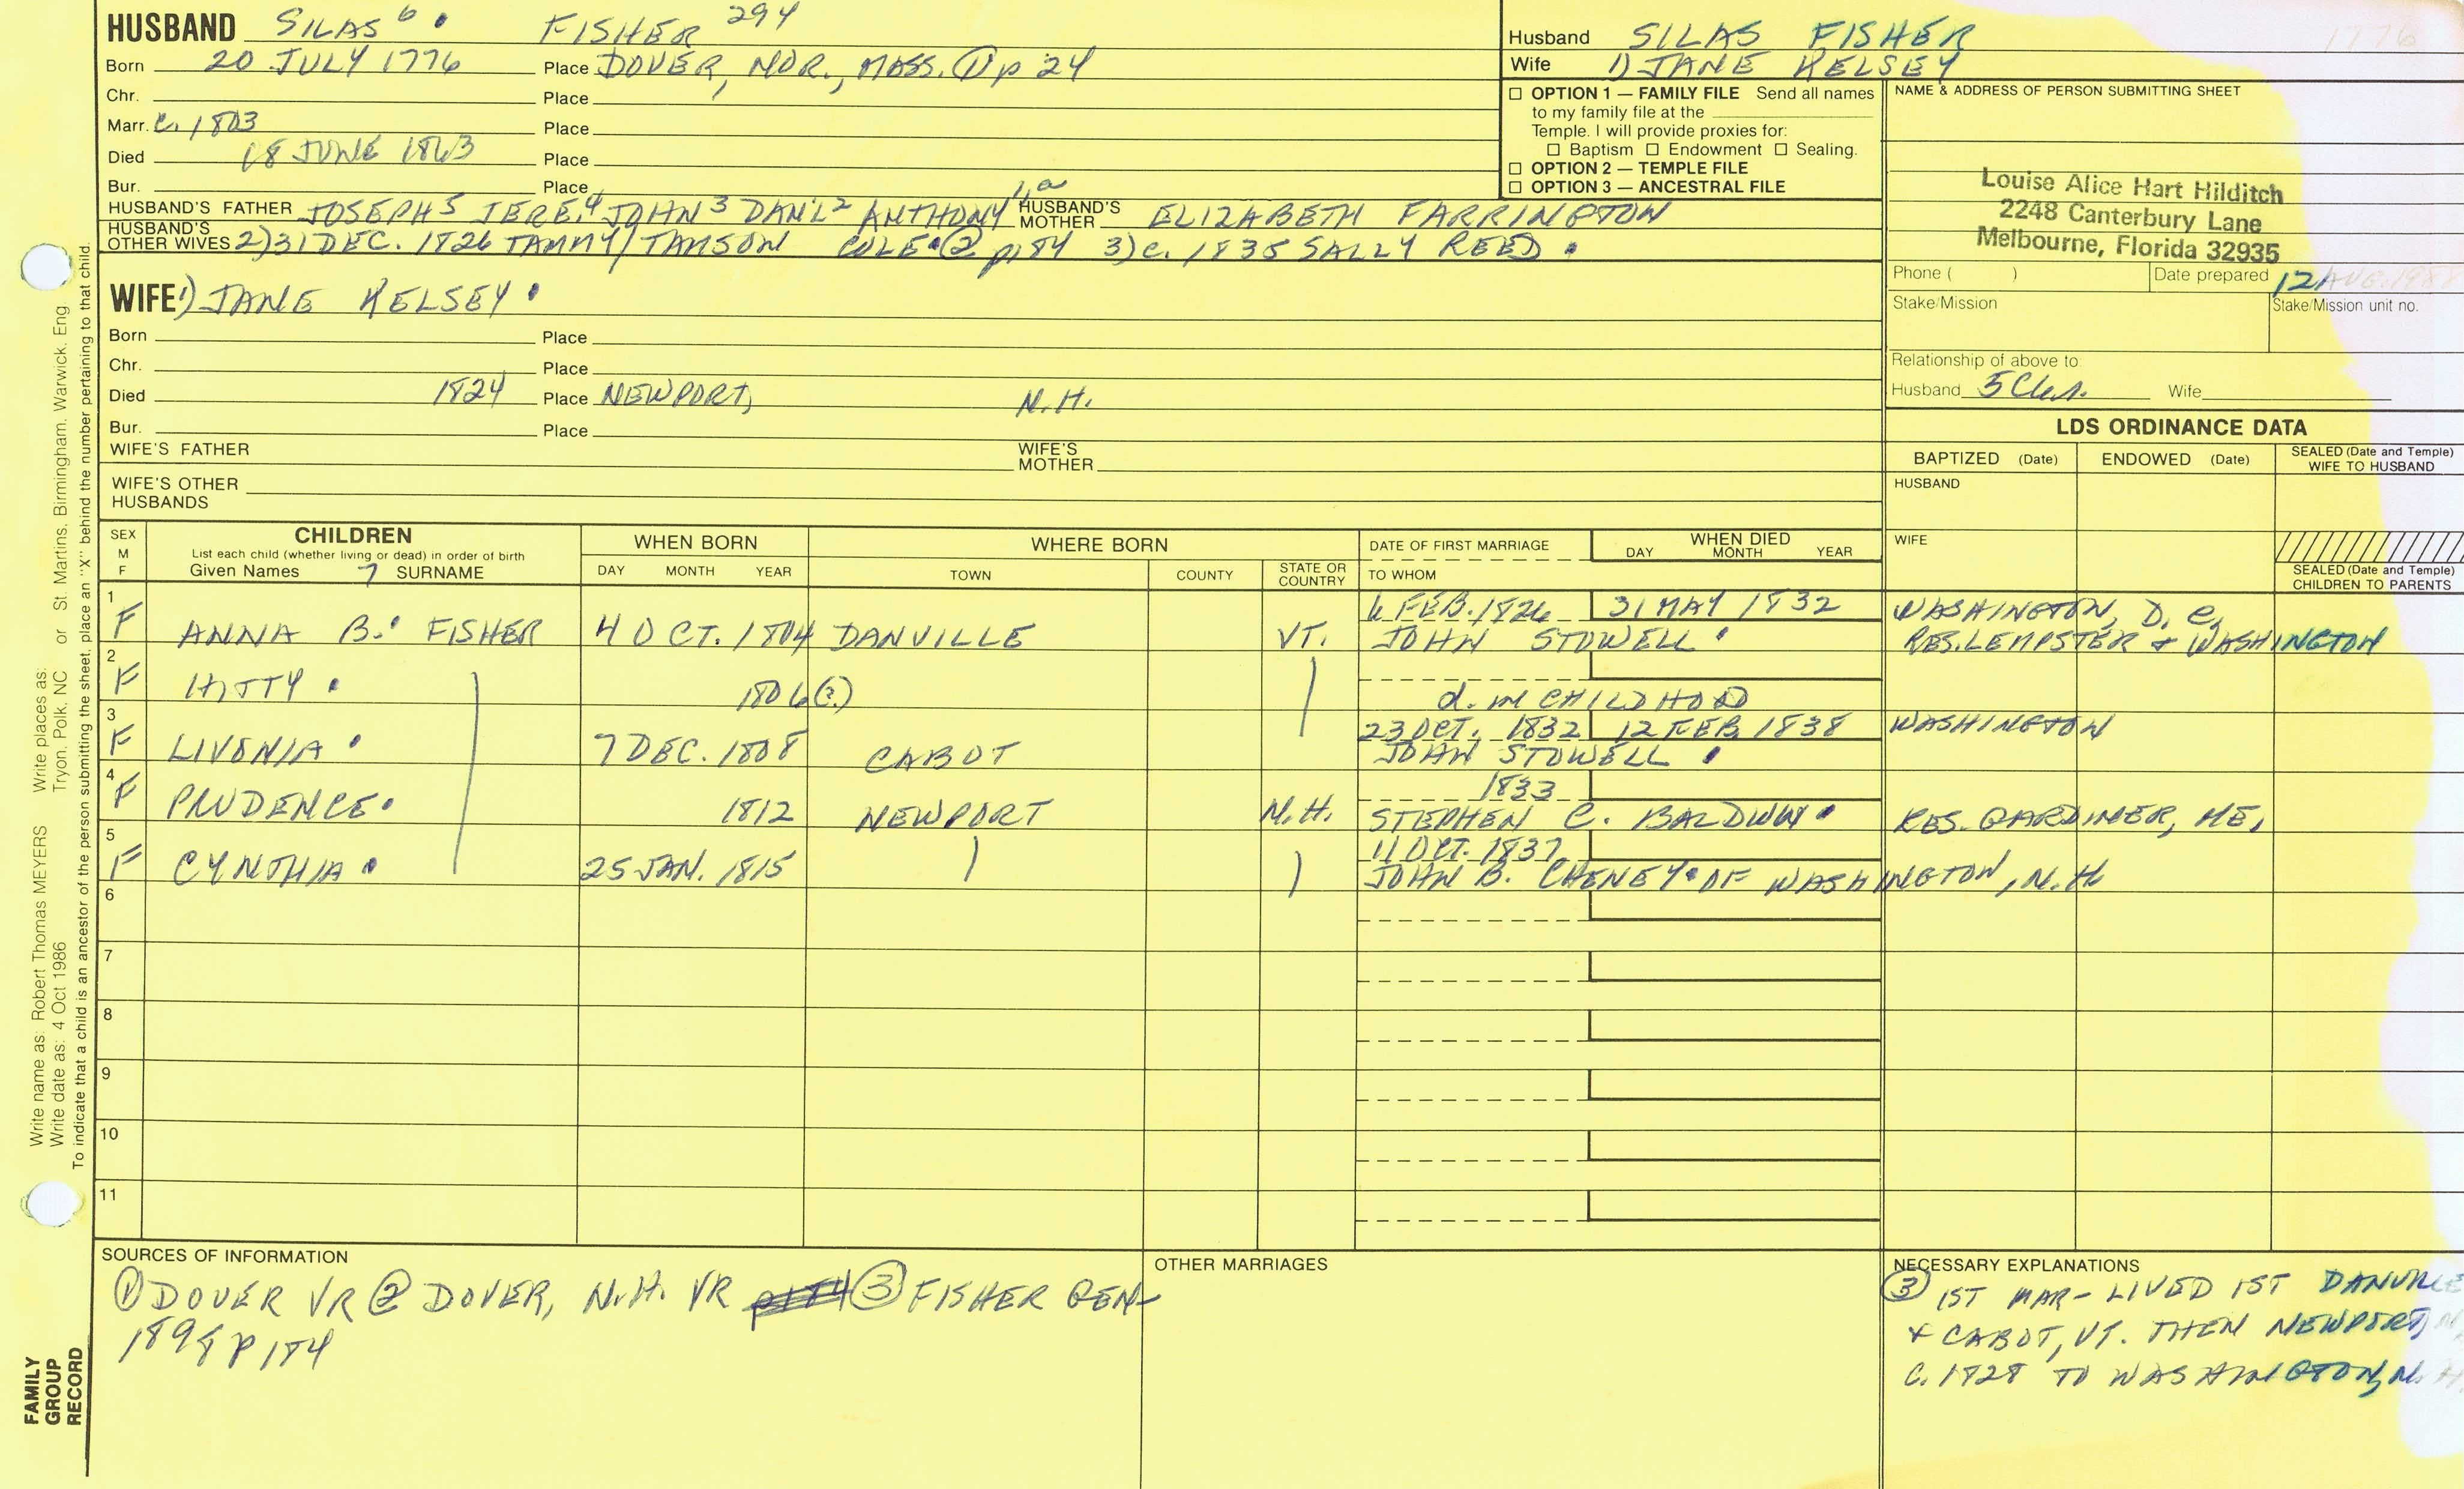 HUSBAND SILAS 6 FISHER 294
Born 20 JULY 1776 Place DOVER, NOR., MASS. ① p 24
Chr. Place
Marr. C. 1803 Place
Died 18 JUNE 1863 Place
Bur. Place
HUSBAND'S FATHER JOSEPH 5 JERE. 4 JOHN 3 DAN'L 2 ANTHONY 1,a HUSBAND'S MOTHER ELIZABETH FARRINGTON
HUSBAND'S OTHER WIVES 2) 31 DEC. 1826 TAMMY/TAMSON COLE ② p184 3) C. 1835 SALLY REED
WIFE 1) JANE KELSEY
Born Place
Chr. Place
Died 1824 Place NEWPORT, N.H.
Bur. Place
WIFE'S FATHER WIFE'S MOTHER
WIFE'S OTHER HUSBANDS
Husband SILAS FISHER 1776
Wife 1) JANE KELSEY
☐ OPTION 1 — FAMILY FILE Send all names
to my family file at the
Temple. I will provide proxies for:
☐ Baptism ☐ Endowment ☐ Sealing.
☐ OPTION 2 — TEMPLE FILE
☐ OPTION 3 — ANCESTRAL FILE
NAME & ADDRESS OF PERSON SUBMITTING SHEET
Louise Alice Hart Hilditch
2248 Canterbury Lane
Melbourne, Florida 32935
Phone ( ) Date prepared 12 AUG.
Stake/Mission Stake/Mission unit no.
Relationship of above to:
Husband Wife
LDS ORDINANCE DATA
BAPTIZED (Date) ENDOWED (Date) SEALED (Date and Temple) WIFE TO HUSBAND
HUSBAND
WIFE
SEALED (Date and Temple) CHILDREN TO PARENTS
SEX M F
CHILDREN
List each child (whether living or dead) in order of birth
Given Names 7 SURNAME
WHEN BORN
DAY MONTH YEAR
WHERE BORN
TOWN COUNTY STATE OR COUNTRY
DATE OF FIRST MARRIAGE
TO WHOM
WHEN DIED
DAY MONTH YEAR
1 6 FEB. 1826 31 MAY 1832 WASHINGTON, D. C.
F ANNA B. FISHER 4 OCT. 1804 DANVILLE VT. JOHN STOWELL RES. LEMPSTER + WASHINGTON
2
F HITTY 1806(?) d. in CHILDHOOD
3 23 OCT. 1832 12 FEB. 1838 WASHINGTON
F LIVONIA 7 DEC. 1808 CABOT JOHN STOWELL
4 1833
F PRUDENCE 1812 NEWPORT N.H. STEPHEN C. BALDWIN RES. GARDINER, ME.
5 11 OCT. 1837
F CYNTHIA 25 JAN. 1815 JOHN B. CHENEY OF WASHINGTON, N.H.
6
7
8
9
10
11
SOURCES OF INFORMATION
① DOVER VR ② DOVER, N.H. VR ③ FISHER GEN
1898 p 184
OTHER MARRIAGES
NECESSARY EXPLANATIONS
③ 1ST MAR - LIVED 1ST DANVILLE
+ CABOT, VT. THEN NEWPORT, N
C. 1828 TO WASHINGTON, N. H.
Write name as: Robert Thomas MEYERS Write places as: Tryon, Polk, NC or St. Martins, Birmingham, Warwick, Eng
Write date as: 4 Oct 1986
To indicate that a child is an ancestor of the person submitting the sheet, place an "X" behind the number pertaining to that child.
FAMILY
GROUP
RECORD